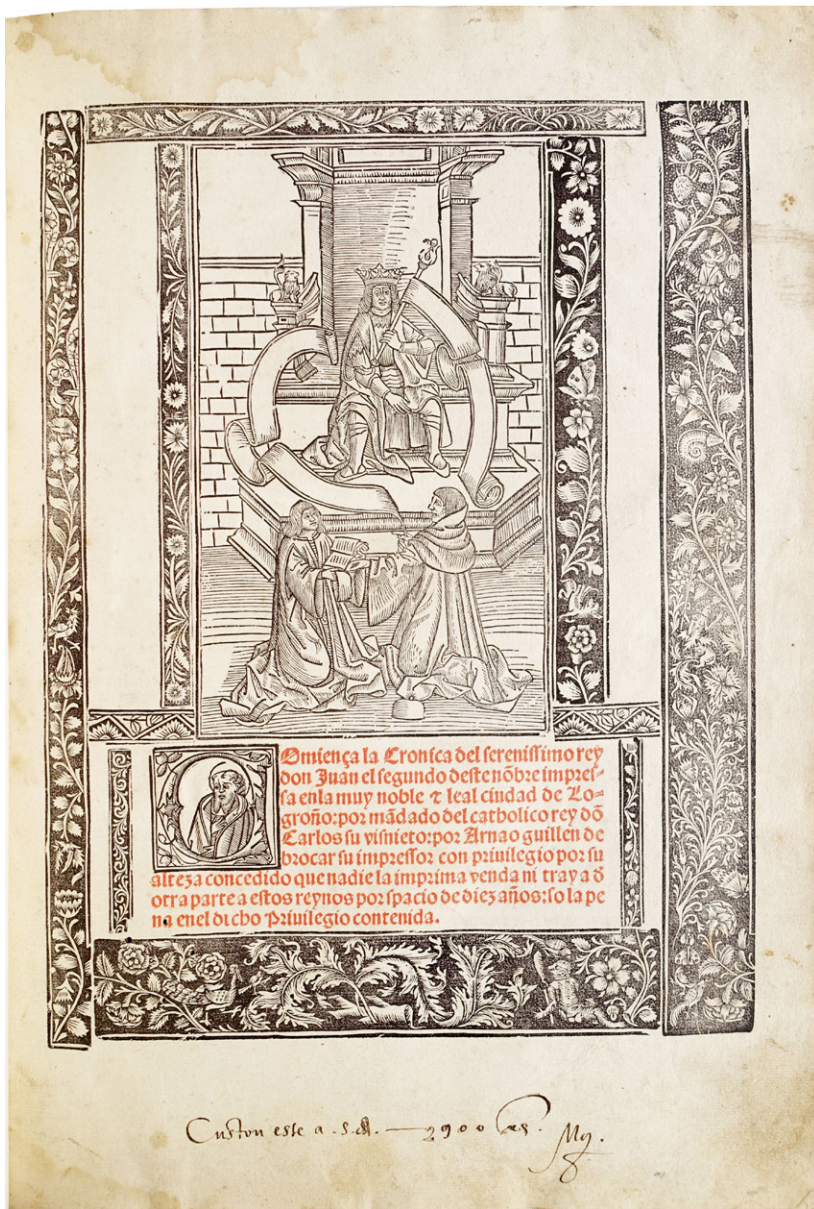 Comiença la Cronica del serenissimo rey
don Juan el segundo deste nõbre impres-
sa enla muy noble ⁊ leal ciudad de Lo=
groño: por mãdado del catholico rey dõ
Carlos su visnieto: por Arnao guillen de
brocar su impressor con priuilegio por su
alteza concedido que nadie la imprima venda ni traya d̃
otra parte a estos reynos por spacio de diez años: so la pe
na enel dicho Priuilegio contenida.
este a
2900